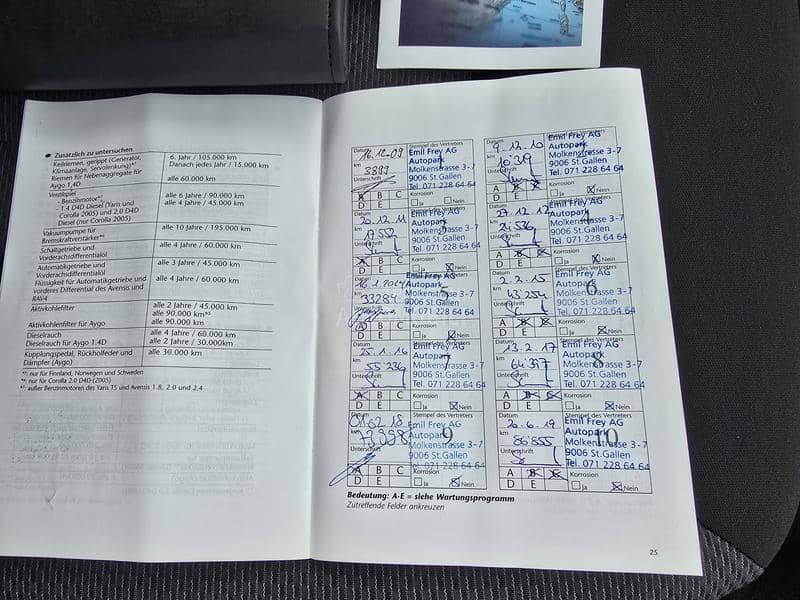 ● Zusätzlich zu untersuchen
Keilriemen, gerippt (Generator,
Klimaanlage, Servolenkung)*¹
6. Jahr / 105.000 km
Danach jedes Jahr / 15.000 km
Riemen für Nebenaggregate für
Aygo 1.4D
alle 60.000 km
Ventilspiel
- Benzinmotor*³
- 1.4 D4D Diesel (Yaris und
Corolla 2005) und 2.0 D4D
Diesel (nur Corolla 2005)
alle 6 Jahre / 90.000 km
alle 4 Jahre / 45.000 km
Vakuumpumpe für
Bremskraftverstärker*¹
alle 10 Jahre / 195.000 km
Schaltgetriebe und
Vorderachsdifferential
alle 4 Jahre / 60.000 km
Automatikgetriebe und
Vorderachsdifferential
alle 3 Jahre / 45.000 km
Flüssigkeit für Automatikgetriebe und
vorderes Differential des Avensis und
RAV4
alle 4 Jahre / 60.000 km
Aktivkohlefilter
alle 2 Jahre / 45.000 km
alle 90.000 km*²
Aktivkohlefilter für Aygo
alle 90.000 km
Dieselrauch
alle 4 Jahre / 60.000 km
Dieselrauch für Aygo 1.4D
alle 2 Jahre / 30.000km
Kupplungspedal, Rückholfeder und
Dämpfer (Aygo)
alle 30.000 km
*¹: nur für Finnland, Norwegen und Schweden
*²: nur für Corolla 2.0 D4D (2005)
*³: außer Benzinmotoren des Yaris TS und Avensis 1.8, 2.0 und 2.4
Datum
16.12.09
km
3899
Unterschrift
Stempel des Vertreters
Emil Frey AG
Autopark
Molkenstrasse 3-7
9006 St.Gallen
Tel. 071 228 64 64
A B C
D E
Korrosion
Ja Nein
9.12.10
km
Emil Frey AG
Autopark
Molkenstrasse 3-7
9006 St.Gallen
Tel. 071 228 64 64
A B C
D E
Korrosion
Ja Nein
Datum
20.12.11
km
17552
Unterschrift
Emil Frey AG
Autopark
Molkenstrasse 3-7
9006 St.Gallen
Tel. 071 228 64 64
A B C
D E
Korrosion
Ja Nein
Datum
27.12.12
km
Unterschrift
Emil Frey AG
Autopark
Molkenstrasse 3-7
9006 St.Gallen
Tel. 071 228 64 64
A B C
D E
Korrosion
Ja Nein
16.1.2014
km
33284
Emil Frey AG
Autopark
Molkenstrasse 3-7
9006 St.Gallen
Tel. 071 228 64 64
A B C
D E
Korrosion
Ja Nein
Datum
2.2.15
km
43254
Unterschrift
Stempel des Vertreters
Emil Frey AG
Autopark
6
Molkenstrasse 3-7
9006 St.Gallen
Tel. 071 228 64 64
A B C
D E
Korrosion
Ja Nein
Datum
25.1.16
km
55236
Unterschrift
Emil Frey AG
Autopark
7
Molkenstrasse 3-7
9006 St.Gallen
Tel. 071 228 64 64
A B C
D E
Korrosion
Ja Nein
Datum
13.2.17
km
64397
Unterschrift
Emil Frey AG
Autopark
8
Molkenstrasse 3-7
9006 St.Gallen
Tel. 071 228 64 64
A B C
D E
Korrosion
Ja Nein
Datum
01.02.18
km
73998
Unterschrift
Stempel des Vertreters
Emil Frey AG
Autopark
9
Molkenstrasse 3-7
9006 St.Gallen
Tel. 071 228 64 64
A B C
D E
Korrosion
Ja Nein
Datum
26.6.19
km
86'855
Unterschrift
Stempel des Vertreters
Emil Frey AG
Autopark
10
Molkenstrasse 3-7
9006 St.Gallen
Tel. 071 228 64 64
A B C
D E
Korrosion
Ja Nein
Bedeutung: A-E = siehe Wartungsprogramm
Zutreffende Felder ankreuzen
25